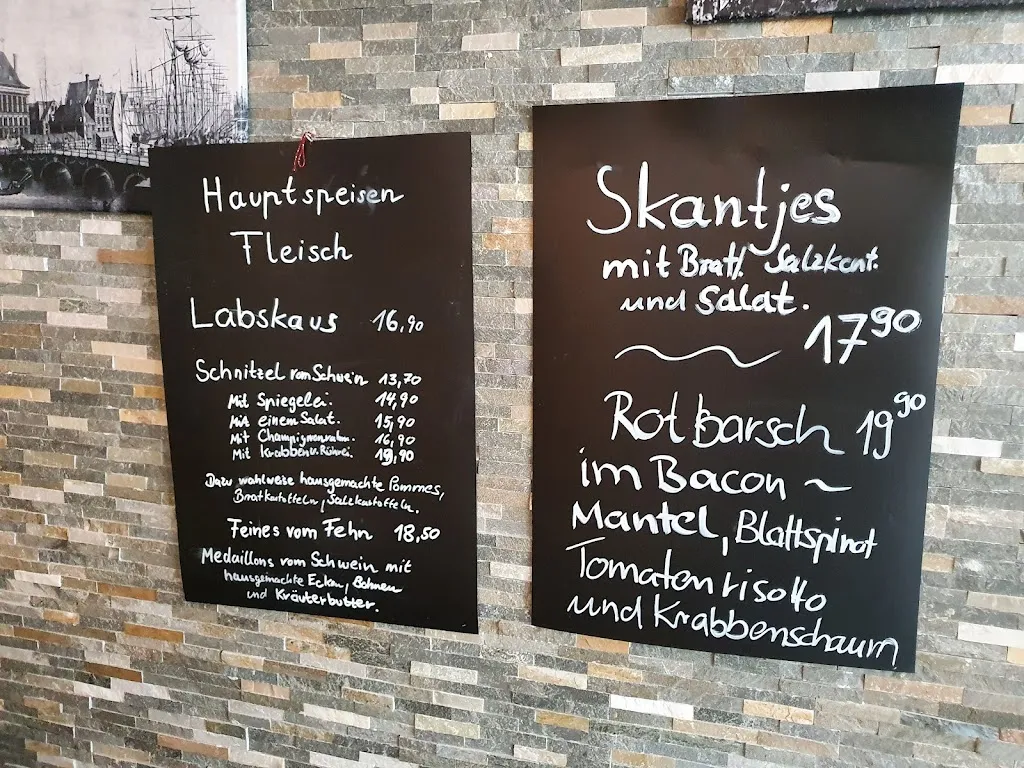 Hauptspeisen
Fleisch
Labskaus 16,90
Schnitzel vom Schwein 13,70
Mit Spiegelei. 14,90
Mit einem Salat. 15,90
Mit Champignonrahm. 16,90
Mit Krabben u. Rührei. 19,90
Dazu wahlweise hausgemachte Pommes,
Bratkartoffeln, Salzkartoffeln.
Feines vom Fehn 18,50
Medaillons vom Schwein mit
hausgemachte Ecken, Bohnen
und Kräuterbutter.
Skantjes
mit Bratk. Salzkart.
und Salat.
17,90
Rotbarsch 19,90
im Bacon ~
Mantel, Blattspinat
Tomatenrisotto
und Krabbenschaum